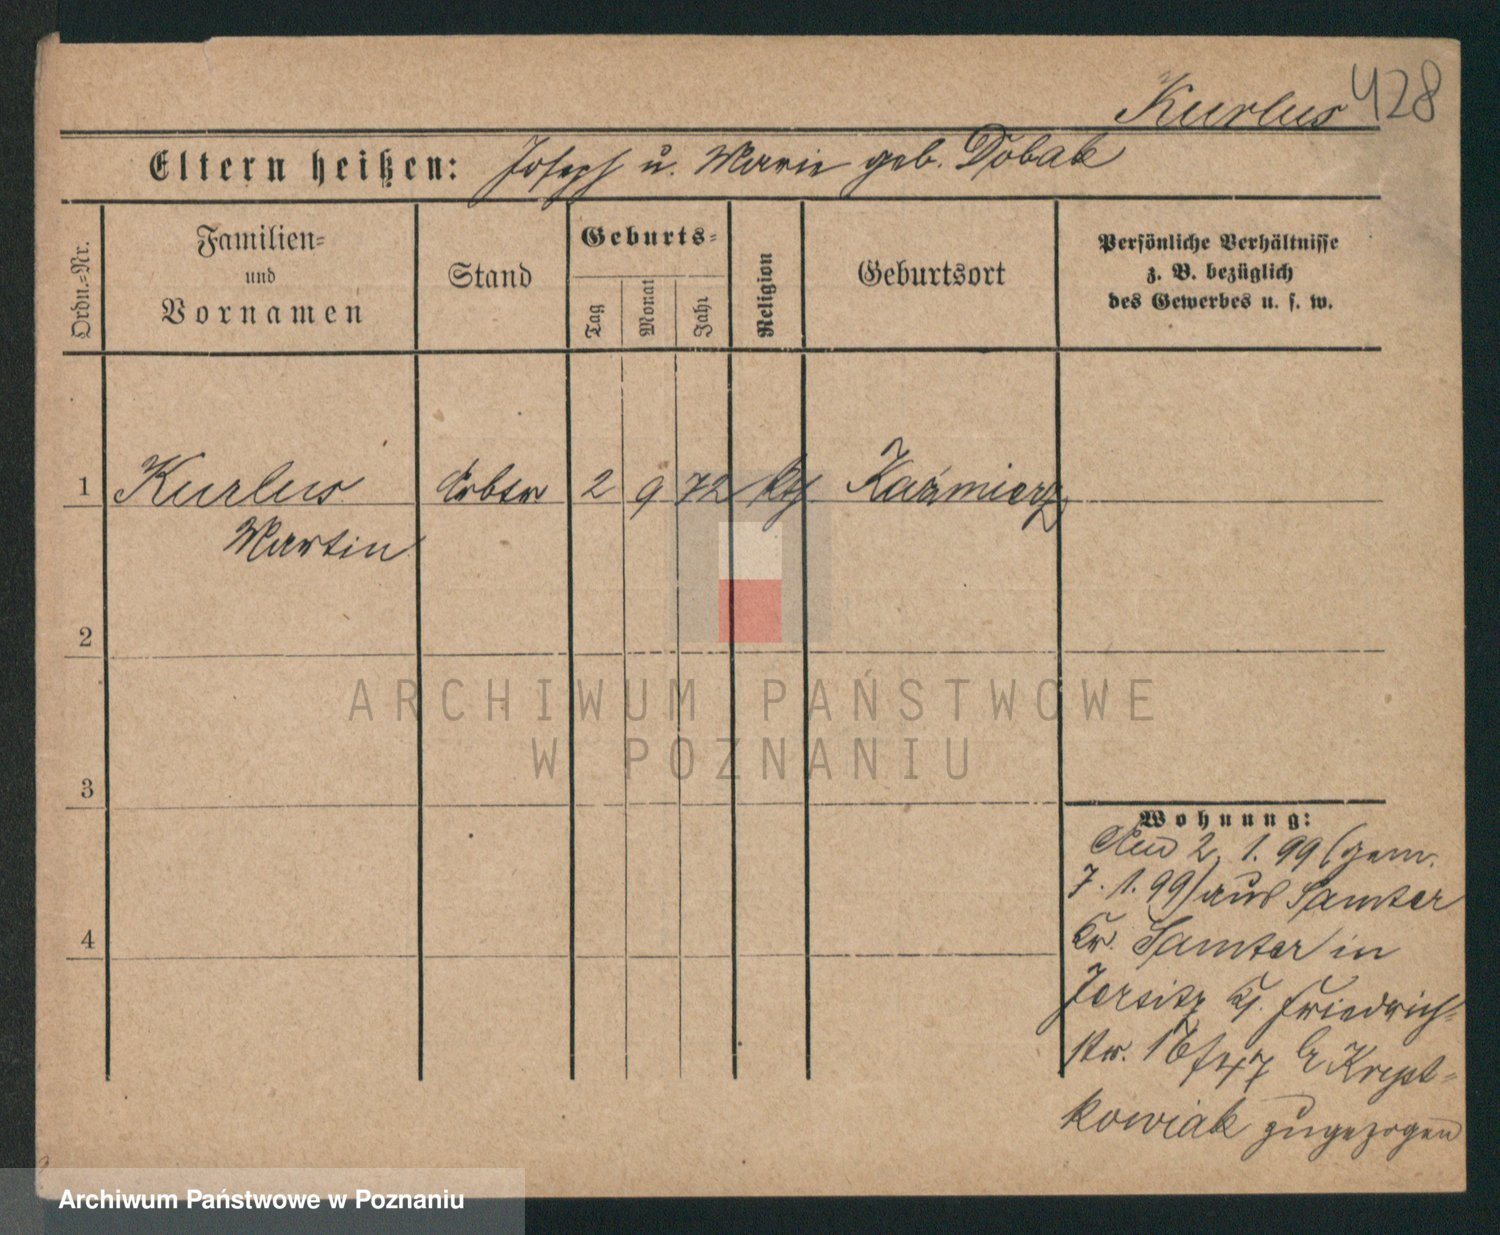 Kurlus 428
Eltern heißen: Joseph u. Marie geb. Dobak
Ordn.-Nr.
Familien-
und
Vornamen
Stand
Geburts-
Tag
Monat
Jahr
Religion
Geburtsort
Persönliche Verhältnisse
z. B. bezüglich
des Gewerbes u. s. w.
1 Kurlus Arbtr 2 9 72 kth Kaźmierz
Martin
2
3
4
ARCHIWUM PAŃSTWOWE
W POZNANIU
Wohnung:
2. 1. 99 (gem.
7. 1. 99) aus Samter
Kr. Samter in
Jersitz Friedrich-
str. b Krept-
kowiak zugezogen
Archiwum Państwowe w Poznaniu